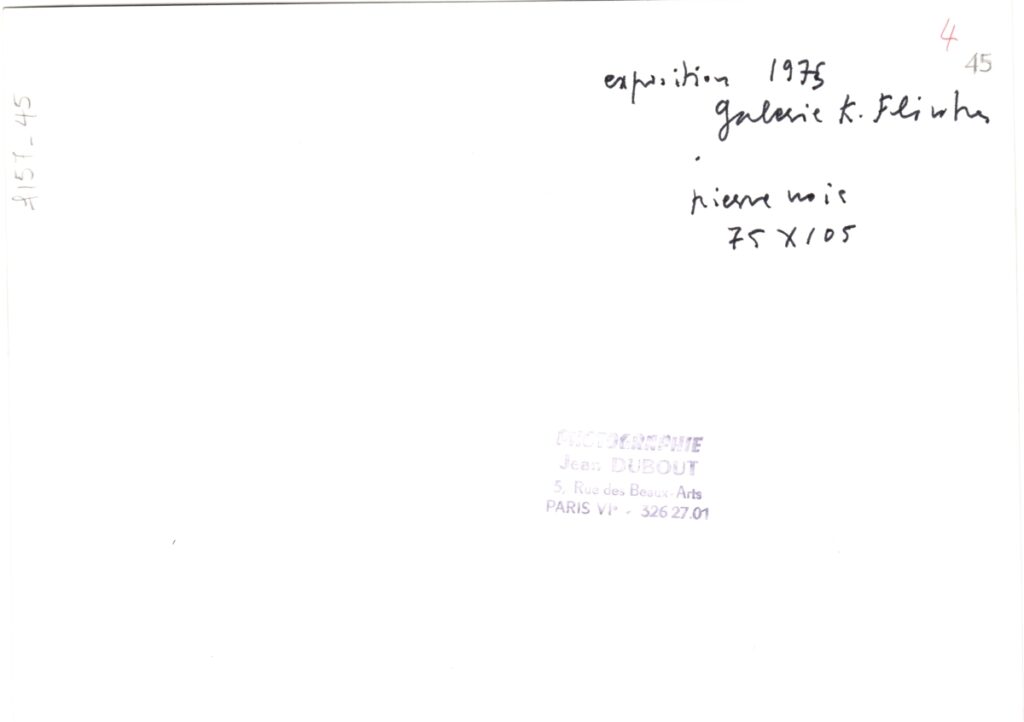 4
45
exposition 1975
galerie K. Flinker
pierre noire
75 X 105
PHOTOGRAPHIE
Jean DUBOUT
5, Rue des Beaux-Arts
PARIS VIe - 326 27.01